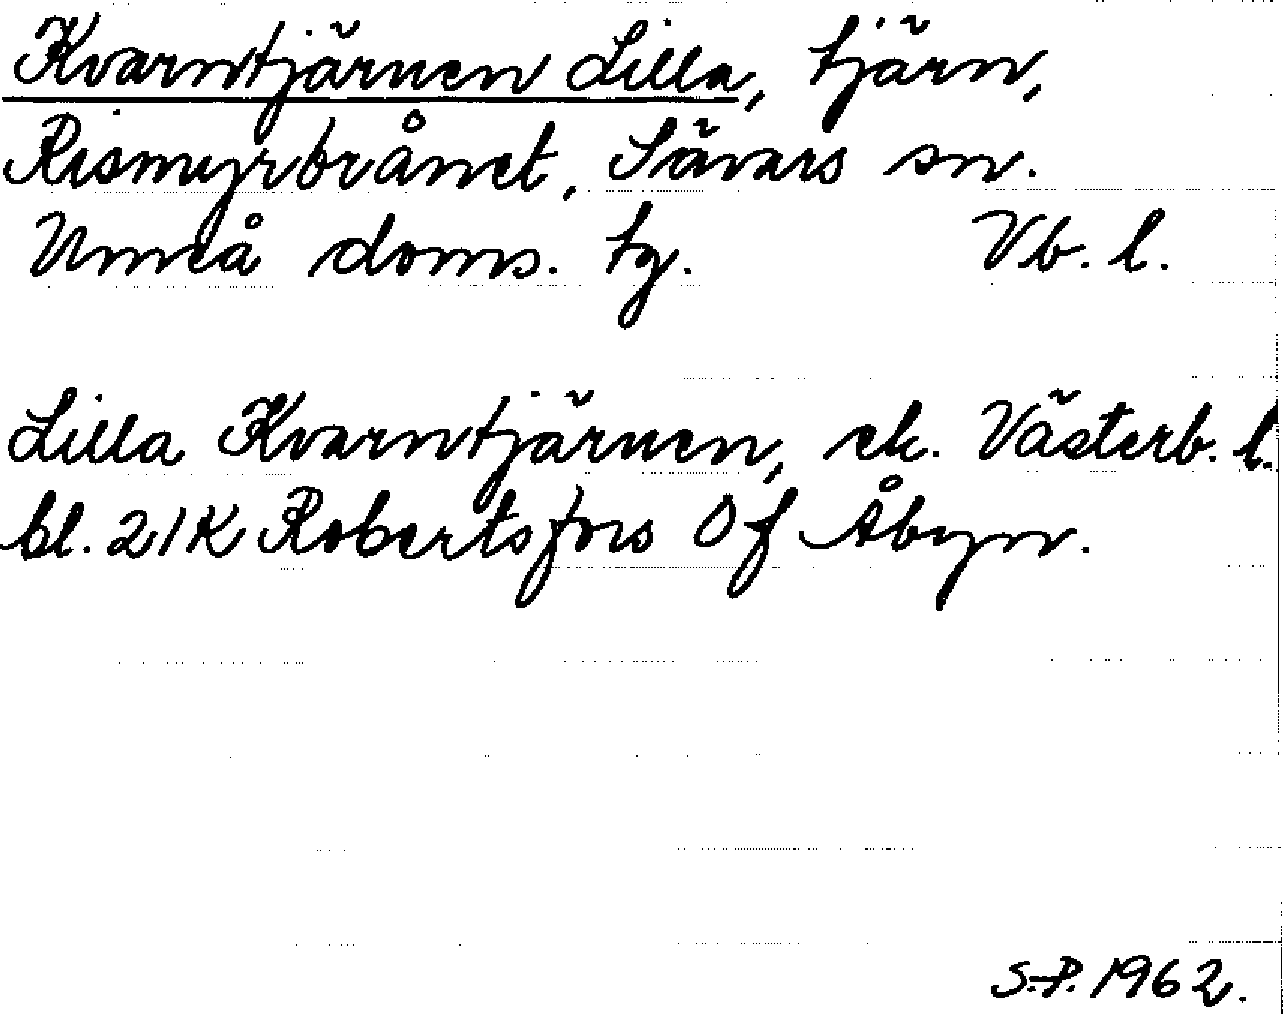 Kvarntjärnen Lilla, tjärn,
Rismyrbrånet, Sävars sn.
Umeå doms. tg. Vb. l.
Lilla Kvarntjärnen, ek. Västerb. l.
bl. 21K Robertsfors 0f Åbyn.
S.-P. 1962.